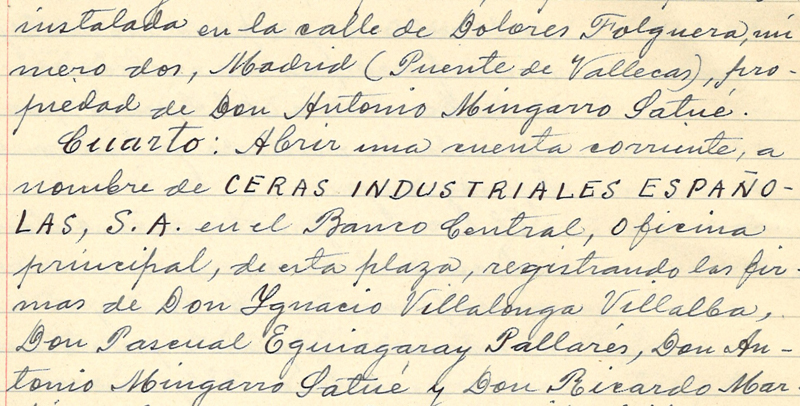 instalada en la calle de Dolores Folguera, nú
mero dos, Madrid (Puente de Vallecas), pro-
piedad de Don Antonio Mingarro Satué.
Cuarto: Abrir una cuenta corriente, a
nombre de CERAS INDUSTRIALES ESPAÑO-
LAS, S.A. en el Banco Central, Oficina
principal, de esta plaza, registrando las fir-
mas de Don Ygnacio Villalonga Villalba,
Don Pascual Eguiagaray Pallarés, Don An-
tonio Mingarro Satué y Don Ricardo Mar-